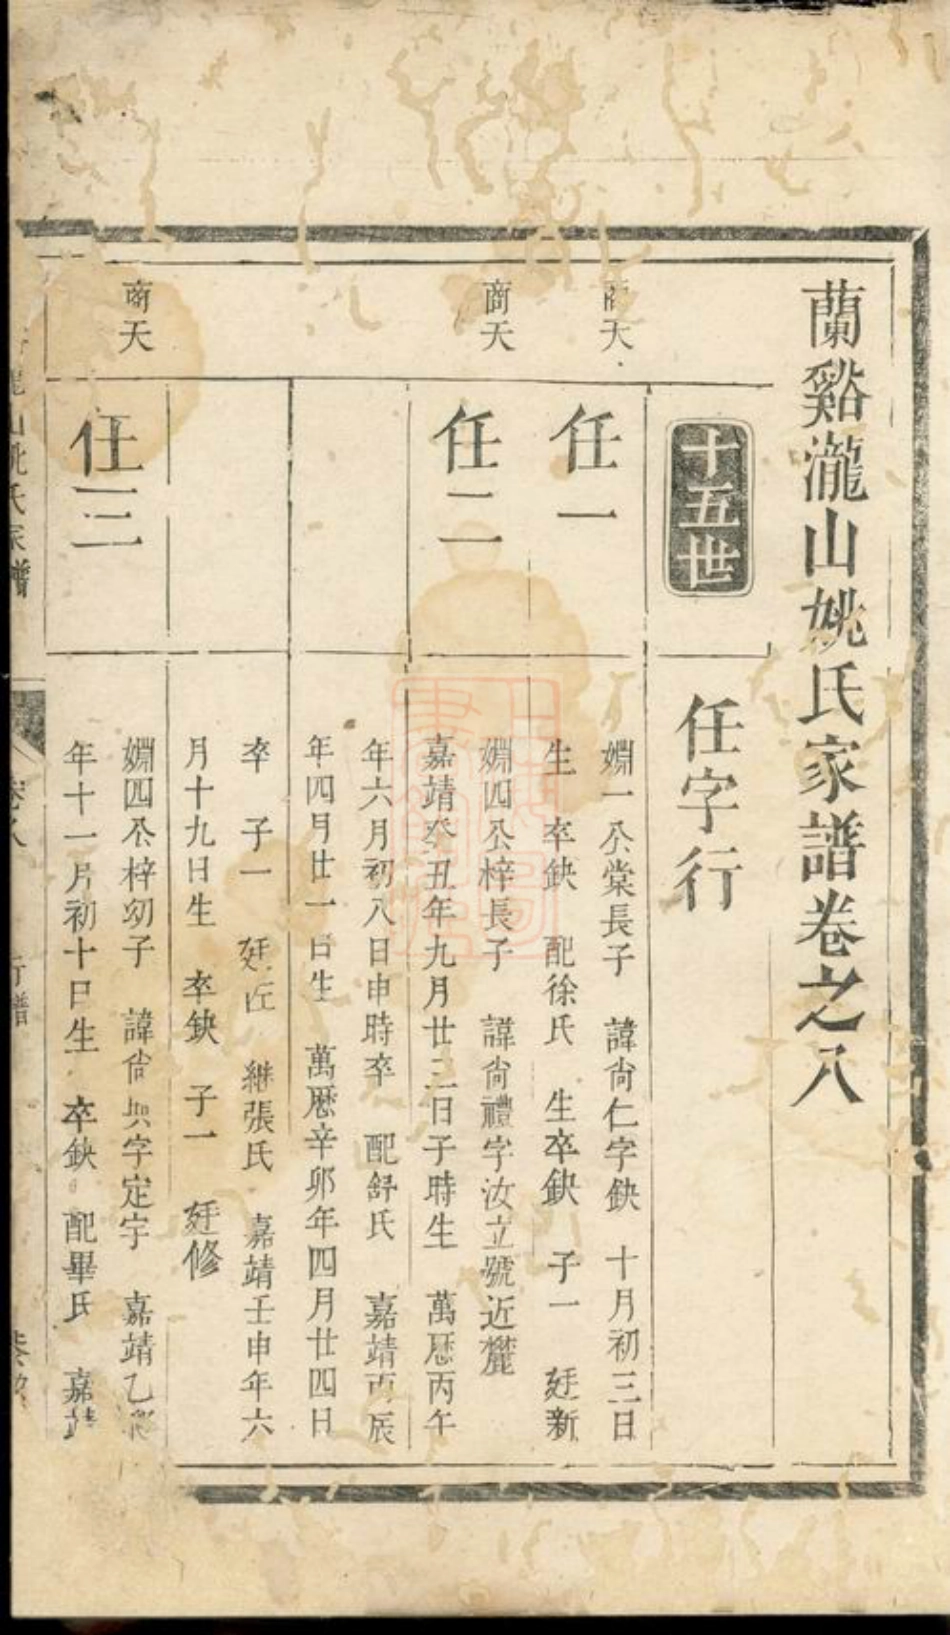 蘭谿瀧山姚氏家譜卷之八
十五世
任字行
天
任一
嫺一公棠長子 諱尙仁字缺 十月初三日
生 卒缺 配徐氏 生卒缺 子一 廷新
商天
任二
嫺四公梓長子 諱尙禮字汝立號近麓
嘉靖癸丑年九月廿三日子時生 萬厯丙午
年六月初八日申時卒 配舒氏 嘉靖丙辰
年四月廿一日生 萬厯辛卯年四月廿四日
卒 子一 廷 継張氏 嘉靖壬申年六
月十九日生 卒缺 子一 廷修
商天
任三
嫺四公梓幼子 諱尙 字定宇 嘉靖乙
年十一月初十日生 卒缺 配畢氏 嘉靖
山姚氏家譜
卷八
行譜